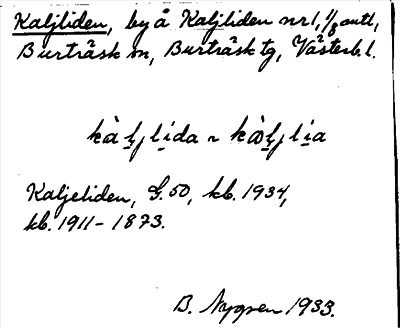 Kaljliden, by å Kaljliden nr 1, 1/8 mtl,
Burträsk sn, Burträsk tg, Västerb. l.
kà l̥ j lida ~ kò l̥ j l i a
Kaljeliden, G. 50, kb. 1934,
kb. 1911-1873.
B. Nygren 1933.